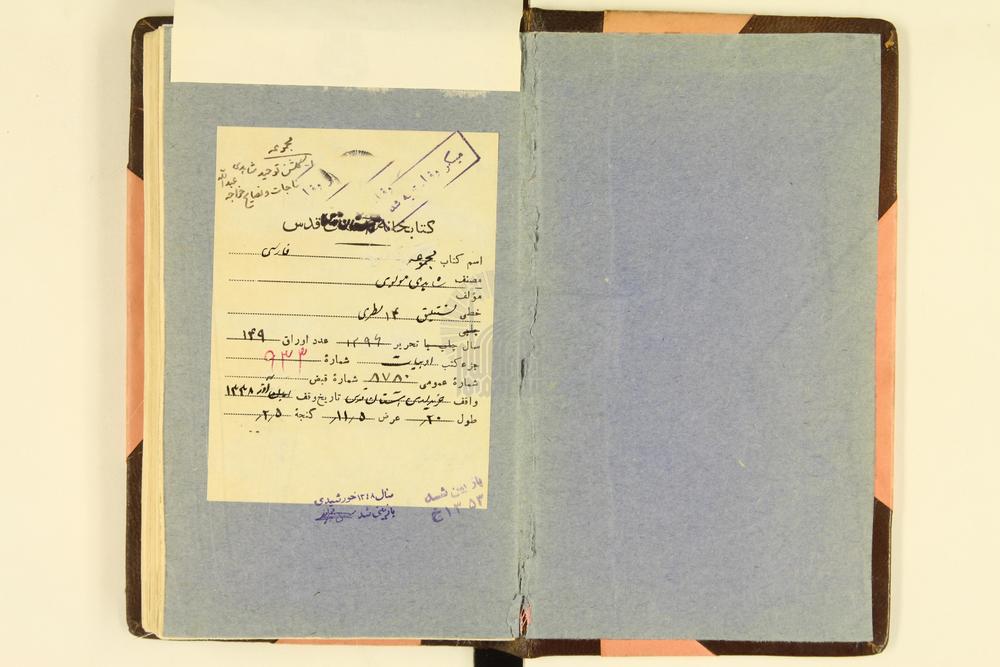 مجموعه
گلشن توحید شاهدی
مناجات و نصایح خواجه عبدالله
میکروفیلم تهیه شد
کتابخانه آستان قدس
اسم کتاب مجموعه فارسی
مصنف شاهدی مولوی
مؤلف
خطی نستعلیق ۱۴ سطری
چاپی
سال چاپ یا تحریر ۱۲۹۶ عدد اوراق ۱۴۹
جزء کتب ادبیات شمارهٔ ۹۳۳
شمارهٔ عمومی ۸۷۸۰ شمارهٔ قبض
واقف خریداری آستان قدس تاریخ وقف آذر ۱۳۳۸
طول ۲۰ عرض ۱۱/۵ گنجهٔ ۲/۵
سال ۱۳۴۸ خورشیدی
بازبینی شد
بازبین شد
۱۳۵۳ خ